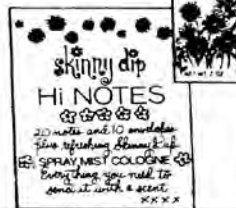 skinny dip
Hi NOTES
20 notes and 10 envelopes
plus refreshing Skinny Dip
SPRAY MIST COLOGNE
Everything you need to
send it with a scent
xxxx
NET WT. 2 OZ.